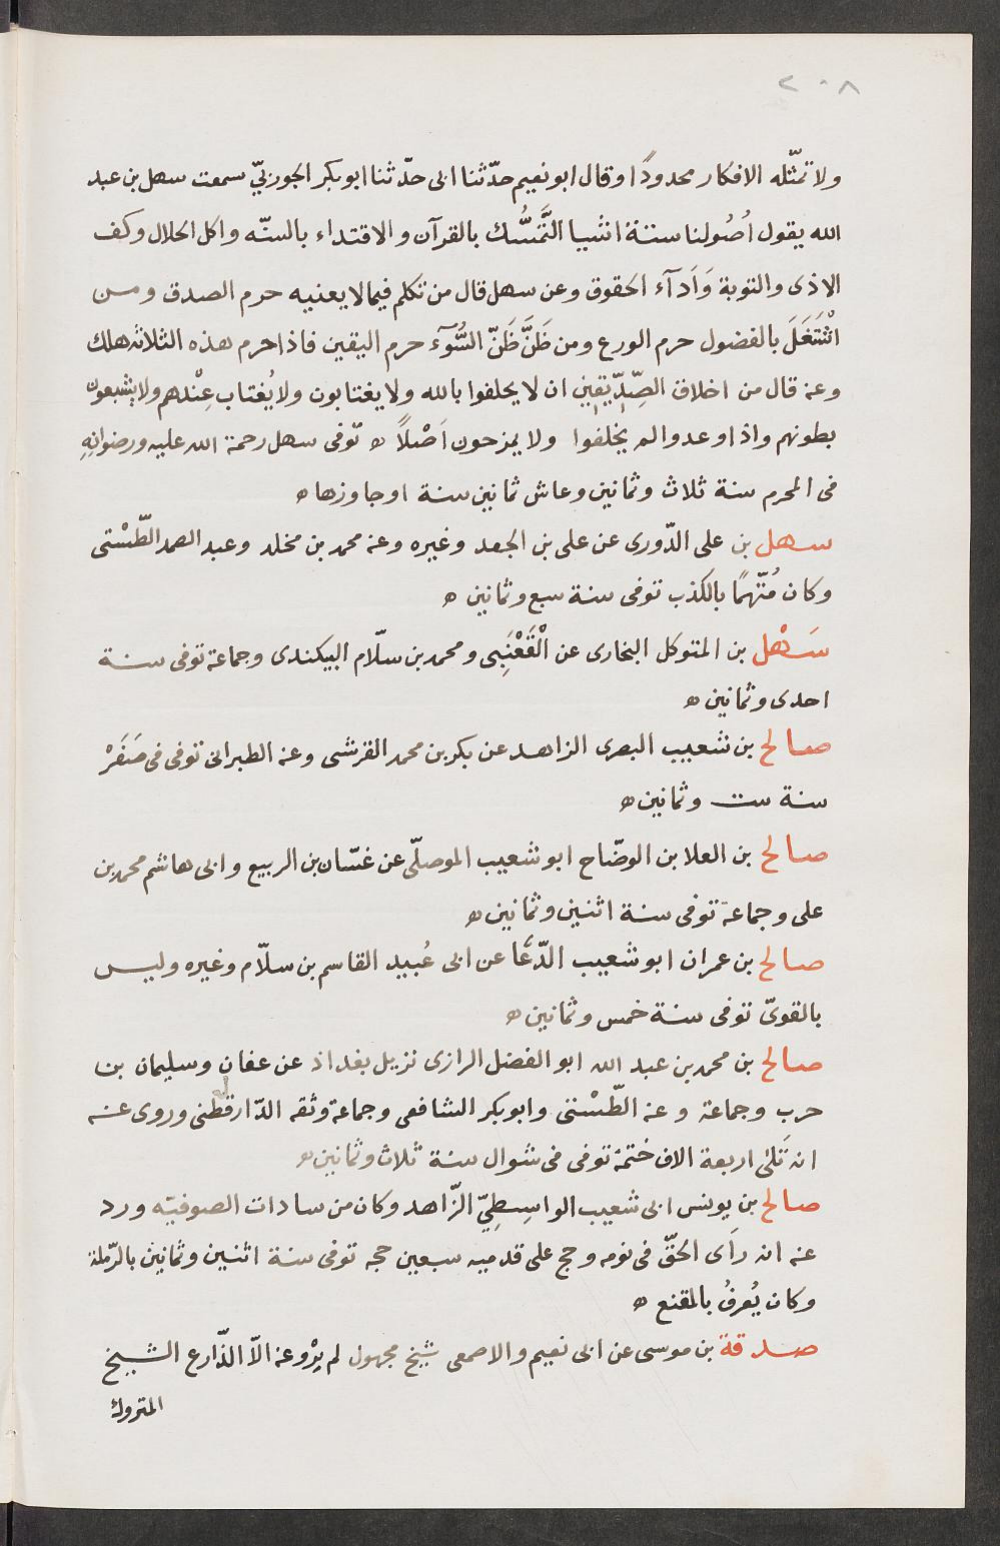 ٢٠٨
ولا تمثّله الافكار محدودًا وقال ابو نعيم حدّثنا ابى حدّثنا ابو بكر الجوربيّ سمعت سهل بن عبد
الله يقول اُصُولنا ستة اشيا التَّمَسُّك بالقرآن والاقتداء بالسنّه واكل الحلال وكف
الاذى والتوبة وَاَدآء الحقوق وعن سهل قال من تكلم فيما لا يعنيه حرم الصدق ومن
اشْتَغَلَ بالفضول حرم الورع ومن ظَنَّ ظَنّ السُّوٓء حرم اليقين فاذا حرم هذه الثلاثه هلك
وعنه قال من اخلاق الصِّدّيقين ان لا يحلفوا بالله ولا يغتابون ولا يُغتاب عِنْدهم ولا يشبعون
بطونهم واذا وعدوا لم يخلفوا ولا يمزحون اَصْلاً ه توفى سهل رحمة الله عليه ورضوانِهِ
فى المحرم سنة ثلاث وثمانين وعاش ثمانين سنة اوجاوزها ه
سهل بن على الدّورى عن على بن الجعد وغيره وعنه محمد بن مخلد وعبد الصمد الطّسْتى
وكان مُتّهمًا بالكذب توفى سنة سبع وثمانين ه
سَهْل بن المتوكل البخارى عن الْقَعْنَبِى ومحمد بن سلّام البيكندى وجماعة توفى سنة
احدى وثمانين ه
صالح بن شعيب البصرى الزاهد عن بكر بن محمد القرشى وعنه الطبرانى توفى فى صَفَرْ
سنة ست وثمانين ه
صالح بن العلا بن الوضّاح ابو شعيب الموصلّى عن غسّان بن الربيع وابى هاشم محمد بن
على وجماعة توفى سنة اثنين وثمانين ه
صالح بن عمران ابو شعيب الدّعّا عن ابى عُبيد القاسم بن سلّام وغيره وليس
بالقوىّ توفى سنة خمس وثمانين ه
صالح بن محمد بن عبد الله ابو الفضل الرازى نزيل بغداذ عن عفان وسليمان بن
حرب وجماعة وعنه الطّسْتى وابو بكر الشافعى وجماعة وثقه الدّارقطنى وروى عنه
انه تَلىٰ اربعة الاف ختمة توفى فى شوال سنة ثلاث وثمانين ه
صالح بن يونس ابى شعيب الواسِطِيّ الزّاهد وكان من سادات الصوفيّه ورد
عنه انه رَاَى الحَقّ فى نومه وحج على قدميه سبعين حجه توفى سنة اثنين وثمانين بالرّملة
وكان يُعرفُ بالمقنع ه
صدقة بن موسى عن ابى نعيم والاصمعى شيخ مجهول لم يرْو عنه الاّ الذّارع الشيخ
المتروك